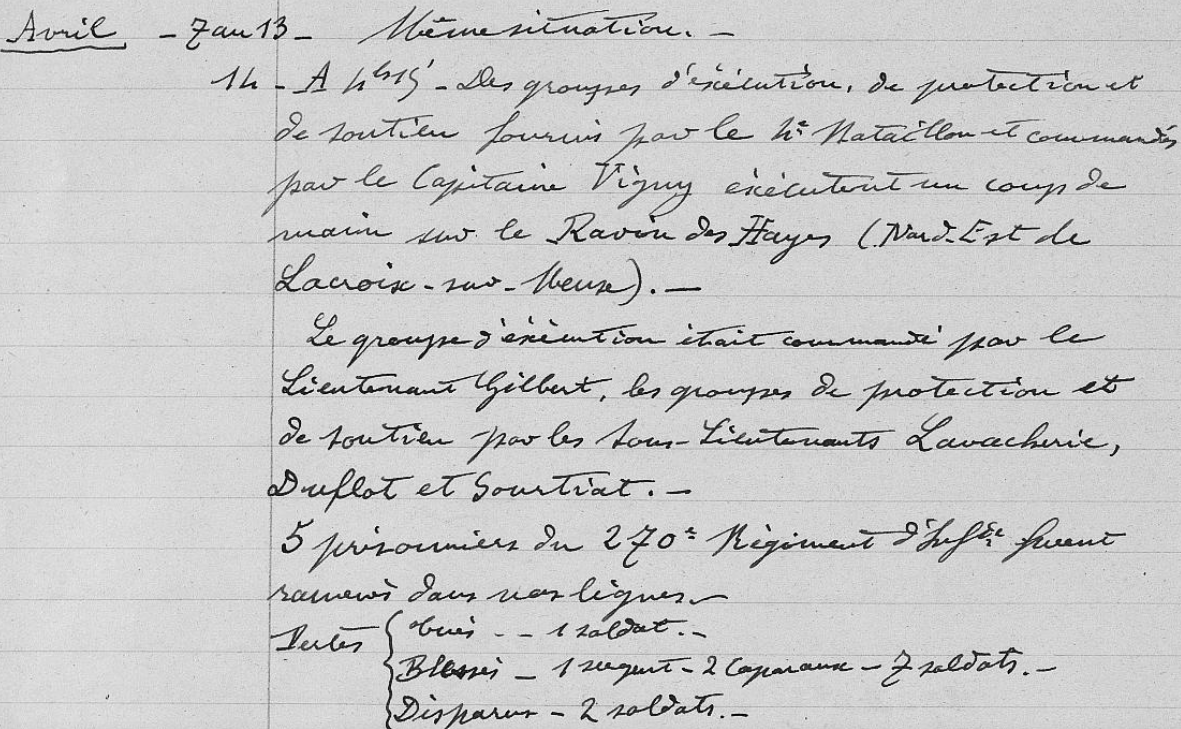 Avril - 7 au 13 - Même situation. -
14 - A 4h15' - Des groupes d'éxécution, de protection et
de soutien fournis par le 4e Bataillon et commandés
par le Capitaine Vigny éxécutent un coup de
main sur le Ravin des Hayes (Nord-Est de
Lacroix-sur-Meuse). -
Le groupe d'éxécution était commandé par le
Lieutenant Gilbert, les groupes de protection et
de soutien par les Sous-Lieutenants Lavacherie,
Duflot et Sourtiat. -
5 prisonniers du 270e Régiment d'Infie furent
ramenés dans nos lignes. -
Pertes { Tués - - 1 soldat. -
Blessés - 1 sergent - 2 Caporaux - 7 soldats. -
Disparus - 2 soldats. -